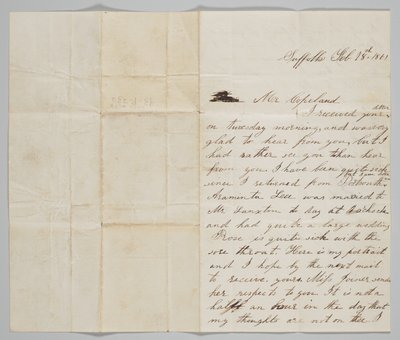 Suffolk Feb 18th 1861
Mr Copeland
I received your
on tuesday morning, and was very
glad to hear from you, but I
had rather see you than hear
from you. I have been quite sick
since I returned from
Araminta Lee was married to
Mr to day at
and had quite a large wedding
Rose is quite sick with the
sore throat. Here is my portrait
and I hope by the next mail
to receive yours. Miss Joiner sends
her respects to you. It is not a
half an hour in the day that
my thoughts are not on thee. I